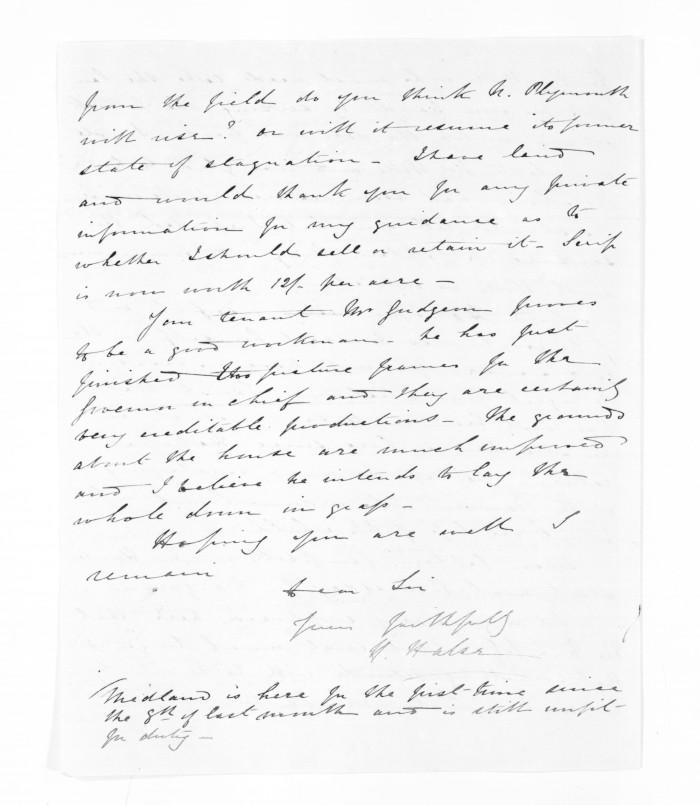 from the field do you think N. Plymouth
will rise? or will it resume its former
state of stagnation - I have land
and would thank you for any private
information for my guidance as to
whether I should sell or retain it - Scrip
is now worth 12/- per acre -
Your tenant Mr Gudgeon proves
to be a good workman - he has just
finished two picture frames for the
Governor in chief and they are certainly
very creditable productions - The grounds
about the house are much improved
and I believe he intends to lay the
whole down in grass -
Hoping you are well I
remain
Dear Sir
Yours faithfully
H. Halse
Midland is here for the first time since
the 8th of last month and is still unfit
for duty -